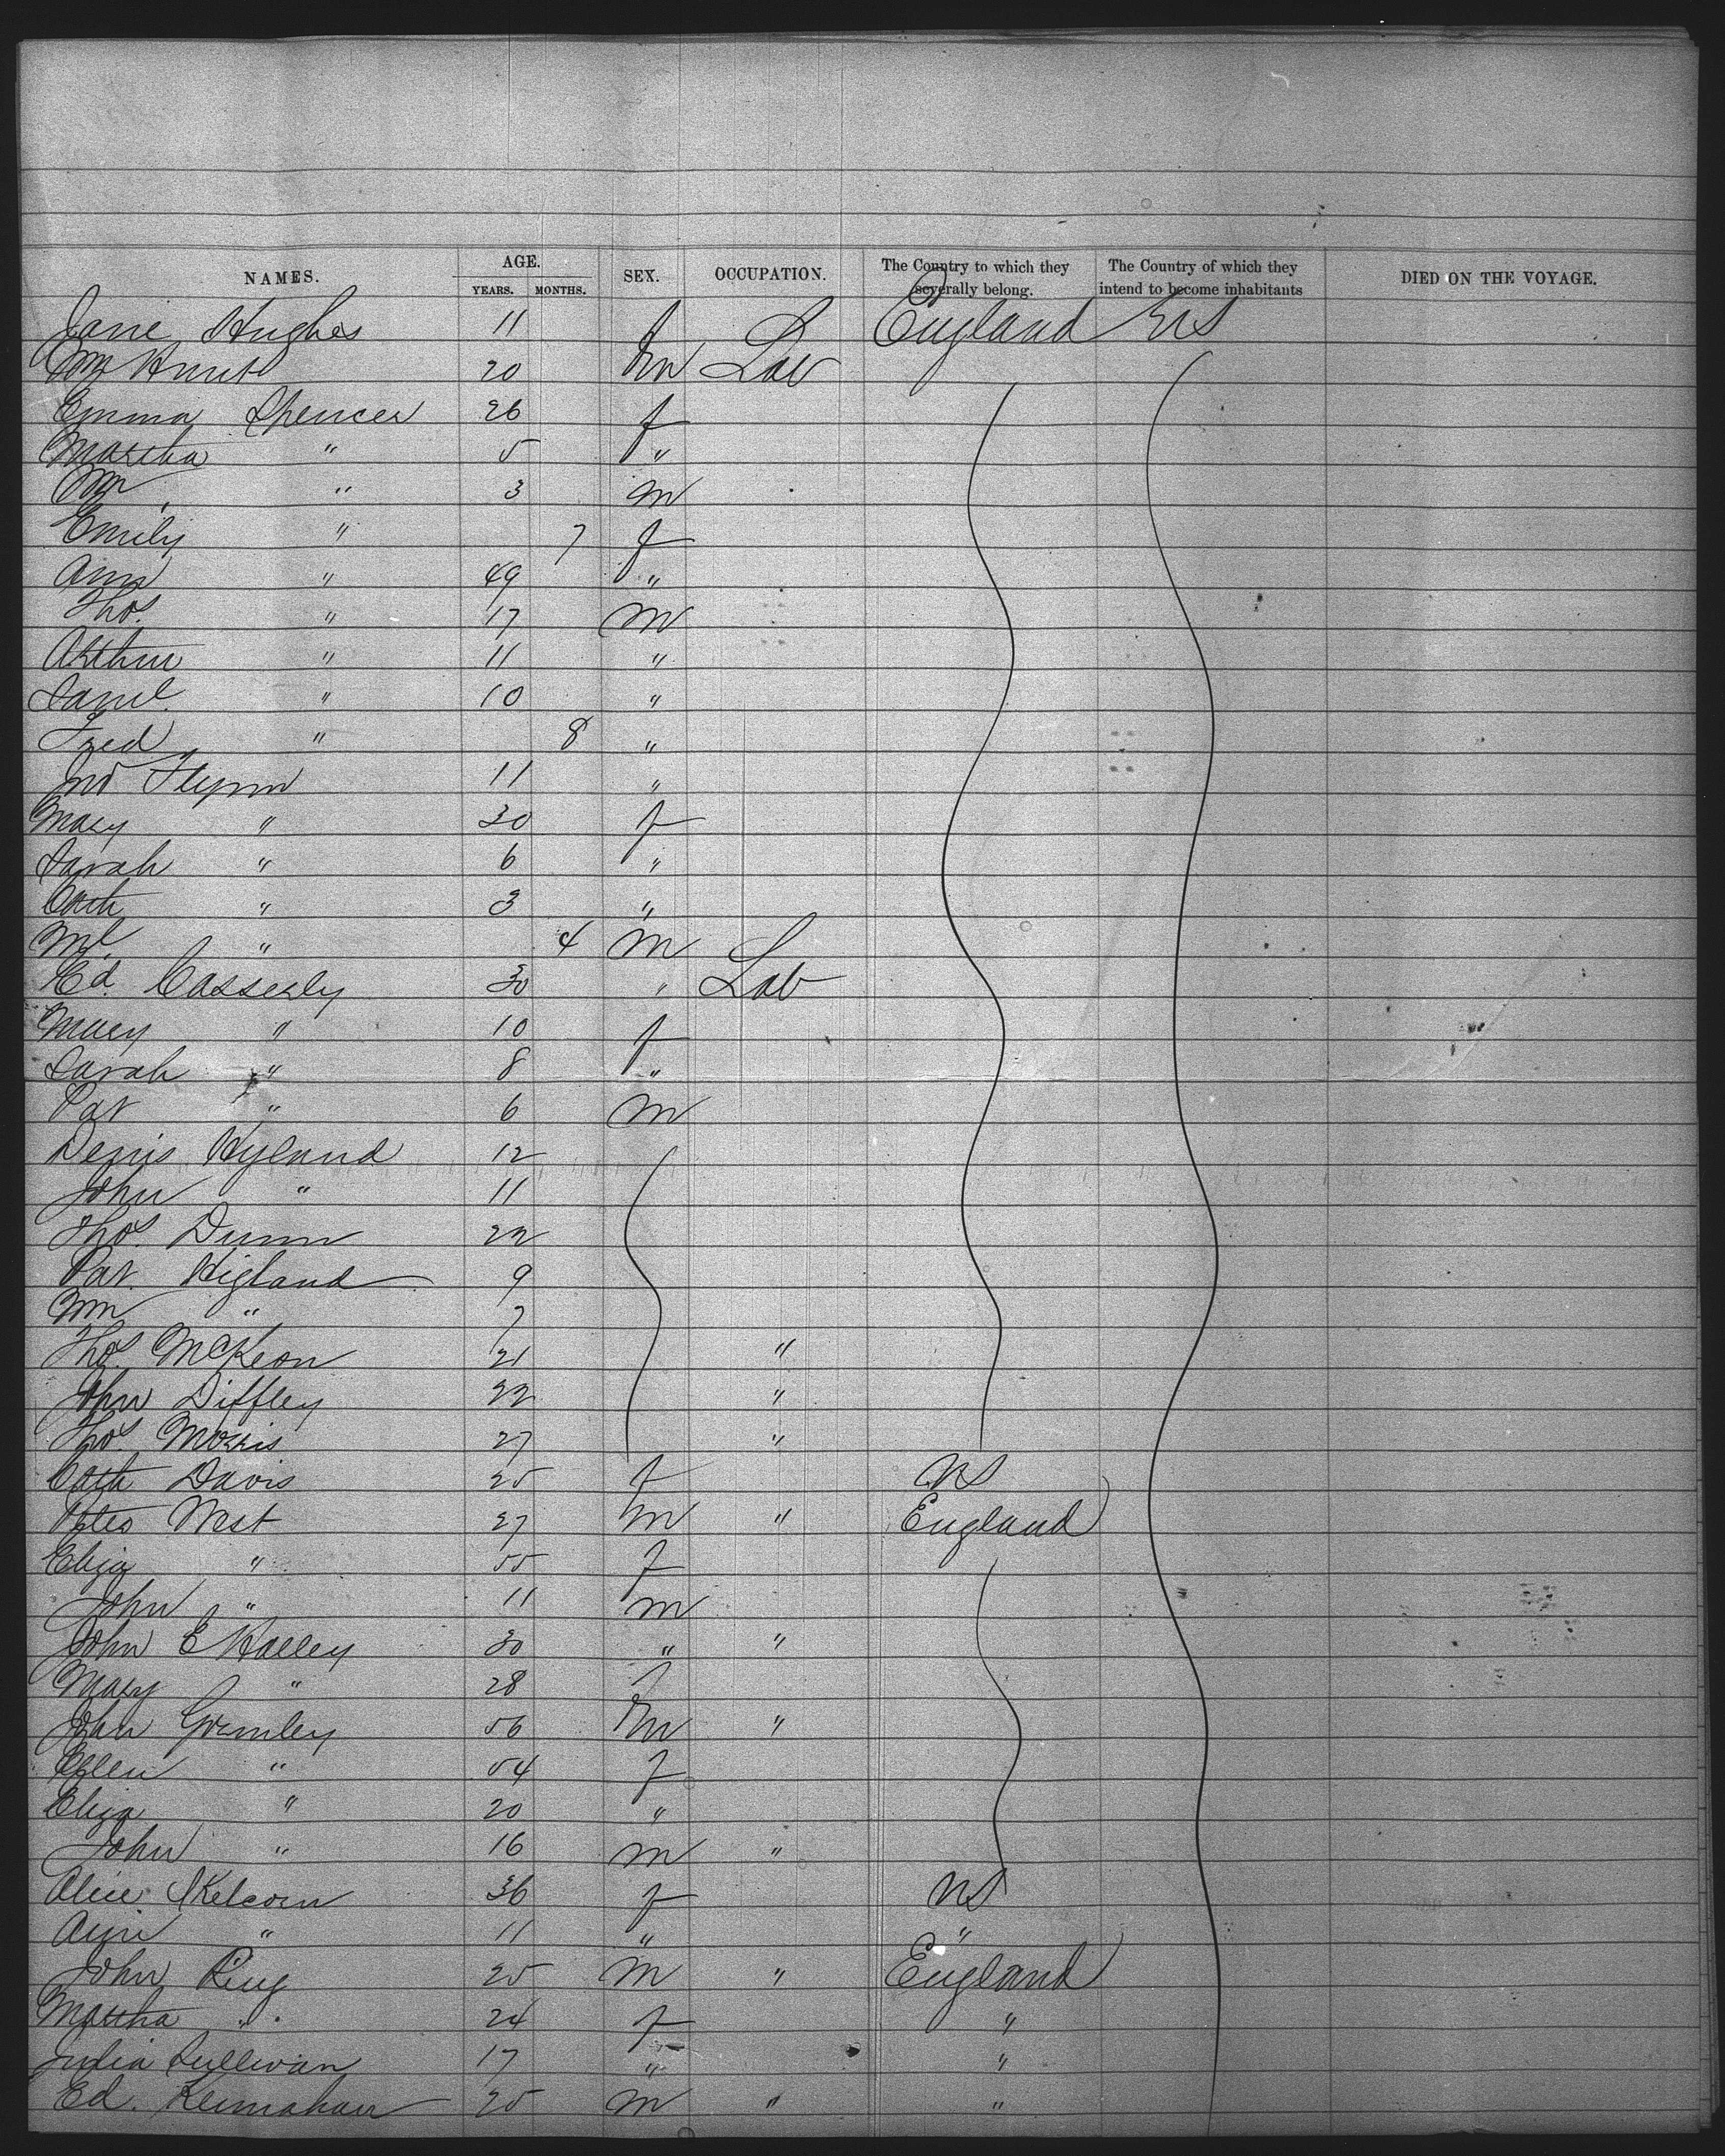 NAMES. AGE. YEARS. MONTHS. SEX. OCCUPATION. The Country to which they severally belong. The Country of which they intend to become inhabitants DIED ON THE VOYAGE.
Jane Hughes 11 f England US
Wm Hunt 20 m Lab
Emma Spencer 26 f
Martha " 5 "
Wm " 3 m
Emily " 7 f
Ann " 49 "
Thos. " 17 m
Arthur " 11 "
Saml. " 10 "
Fred " 8 "
Jno Flynn 11 "
Mary " 30 f
Sarah " 6 "
Cath " 3 "
Ml. " 4 m
Ed. Casserly 30 " Lab
Mary " 10 f
Sarah " 8 "
Pat " 6 m
Denis Hyland 12
John " 11
Thos. Dunn 22
Pat. Higland 9
Wm " 7
Thos. McKeon 21 "
John Diffley 22 "
Thos. Morris 27 "
Cath Davis 25 f US
Peter West 27 m " England
Eliza " 55 f
John " 11 m
John E Halley 30 " "
Mary " 28 f
John Grimley 56 m "
Ellen " 54 f
Eliza " 20 "
John " 16 m "
Alice Skelcorn 36 f US
Ann " 11 " "
John Ring 25 m " England
Martha " 24 f "
Julia Sullivan 17 " "
Ed. 25 m " "